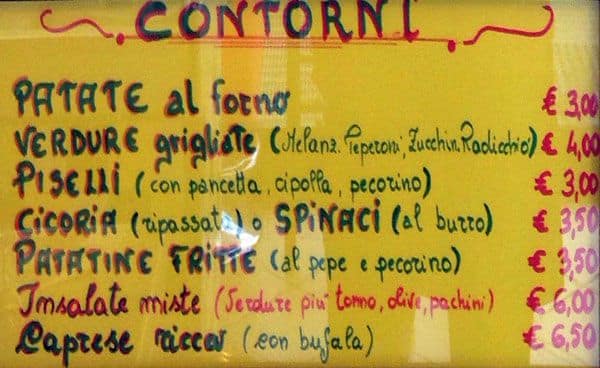 CONTORNI
PATATE al forno € 3,00
VERDURE grigliate (Melanz. Peperoni, Zucchin. Radicchio) € 4,00
PISELLI (con pancetta, cipolla, pecorino) € 3,00
CICORIA (ripassata) o SPINACI (al burro) € 3,50
PATATINE FRITTE (al pepe e pecorino) € 3,50
Insalate miste (Verdure più tonno, olive, pachini) € 6,00
Caprese ricca (con bufala) € 6,50